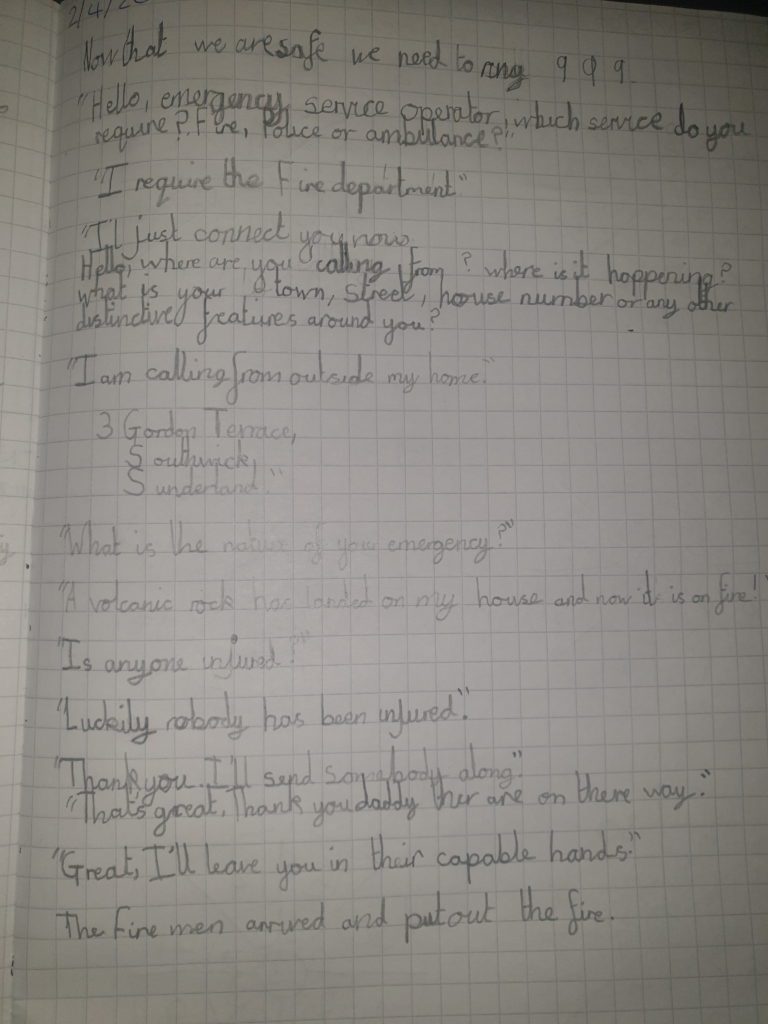 2/4/20
Now that we are safe we need to ring 999.
"Hello, emergency service operator, which service do you
require? Fire, Police or ambulance?"
"I require the Fire department"
"I'l just connect you now.
Hello, where are you calling from? where is it happening?
what is your town, street, house number or any other
distinctive features around you?
"I am calling from outside my home."
3 Gordon Terrace,
Southwick,
Sunderland."
"What is the nature of your emergency?"
"A volcanic rock has landed on my house and now it is on fire!"
"Is anyone injured?"
"Luckily nobody has been injured."
"Thank you. I'll send somebody along"
"That's great, Thank you daddy ther are on there way."
"Great, I'll leave you in their capable hands."
The Fire men arrived and put out the fire.